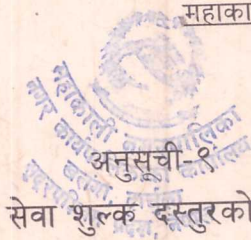 महाका
महाकाली नगरपालिका
नगर कार्य
अनुसूची-९
सेवा शुल्क दस्तुरको